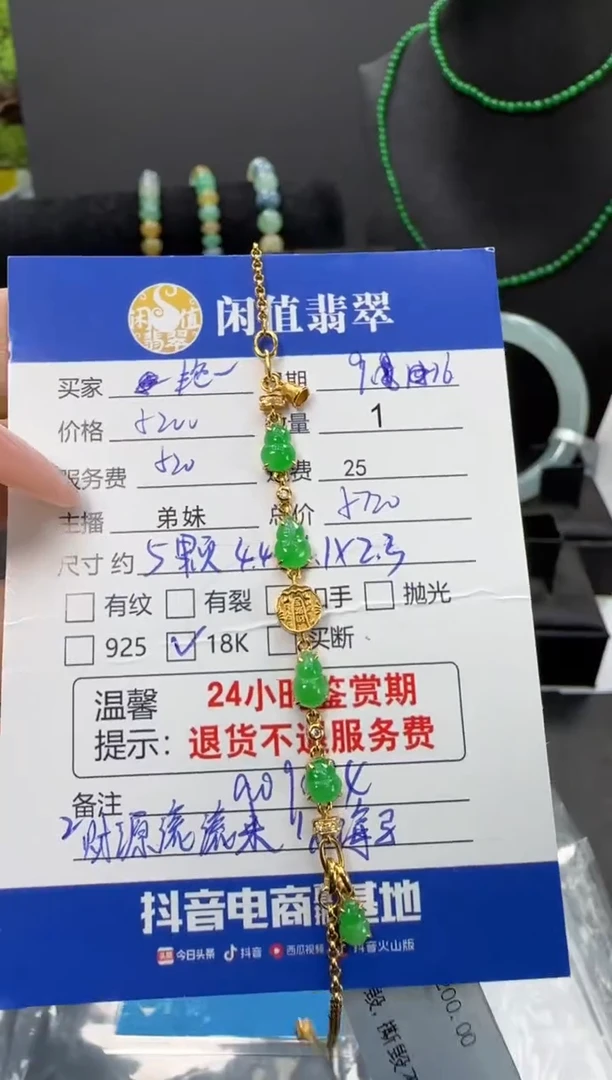 闲值翡翠
闲值翡翠
买家 一 期 9
价格 5200 量 1
服务费 520 费 25
主播 弟妹 总价 5720
尺寸 约 5颗 4.4 .1X2.3
有纹 有裂 手 抛光
925 ✓ 18K 买断
温馨 24小时鉴赏期
提示: 退货不退服务费
备注
财源流流来
抖音电商 基地
头条 今日头条 抖音 西瓜视频 抖音火山版
200.00
毁、撕毁